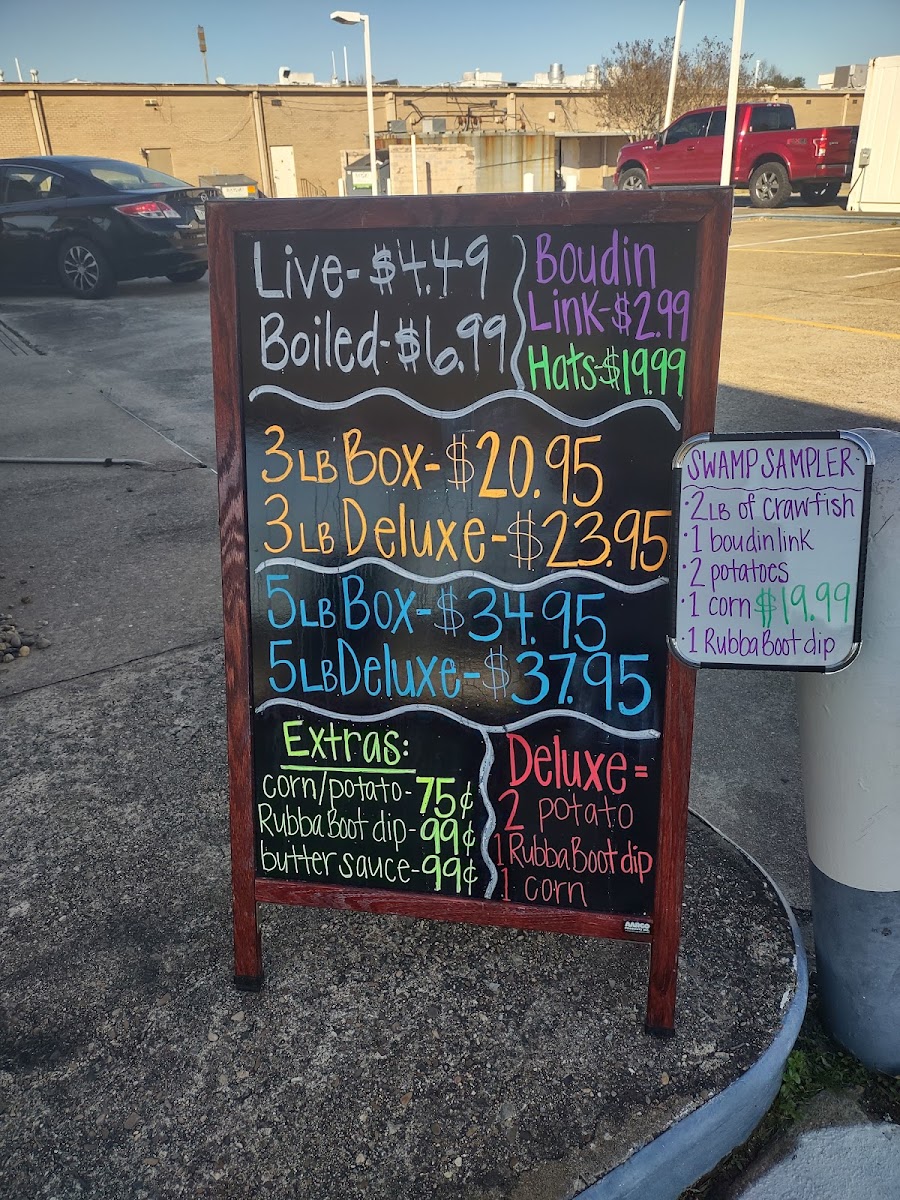 Live-$4.49
Boiled-$6.99
Boudin
Link-$2.99
Hats-$19.99
3LB Box-$20.95
3LB Deluxe-$23.95
5LB Box-$34.95
5LB Deluxe-$37.95
Extras:
corn/potato-75¢
Rubba Boot dip-99¢
butter sauce-99¢
Deluxe=
2 potato
1 Rubba Boot dip
1 corn
AARCO
SWAMP SAMPLER
·2LB of crawfish
·1 boudin link
·2 potatoes
·1 corn $19.99
·1 Rubba Boot dip